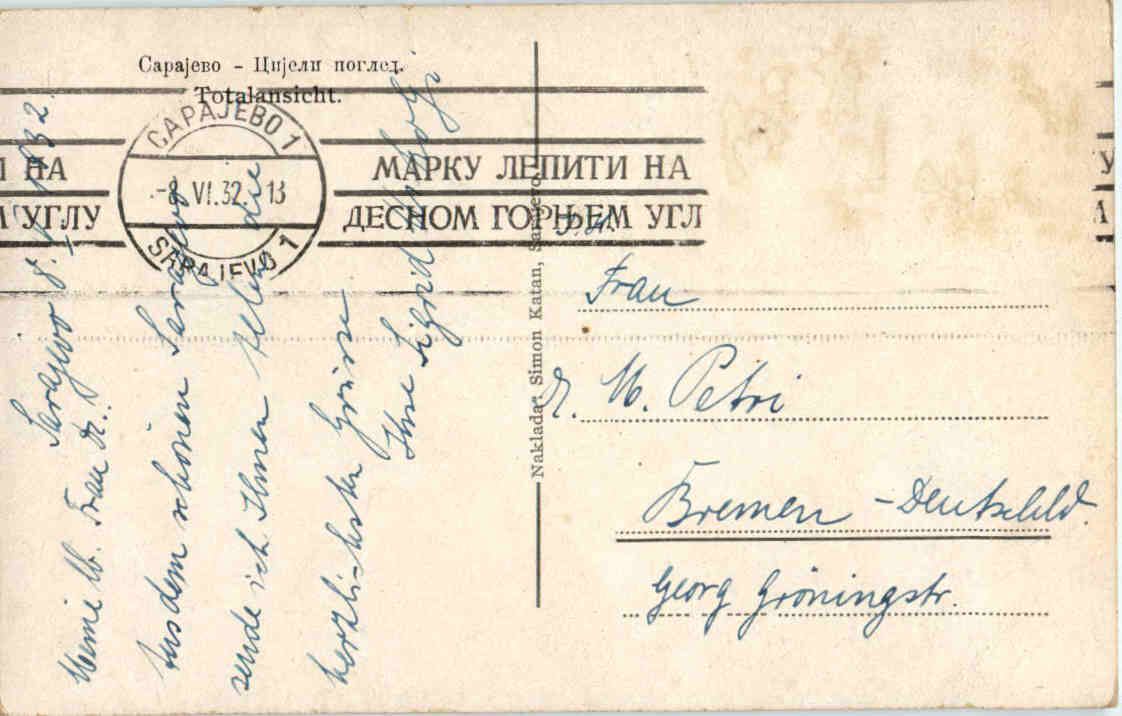 Сарајево - Цијели поглед.
Totalansicht.
САРАЈЕВО 1
-8.VI.32. 13
SARAJEVO 1
И НА
М УГЛУ
МАРКУ ЛЕПИТИ НА
ДЕСНОМ ГОРЊЕМ УГЛ
У
Naklada: Simon Katan, Sarajevo
Sarajevo 8. 1932.
Meine lb. Frau Dr.
Aus dem schönen Sarajevo
sende ich Ihnen die
herzlichsten Grüsse
Ihre Sigrid
Frau
Dr. M. Petri
Bremen - Deutschld.
Georg Gröningstr.